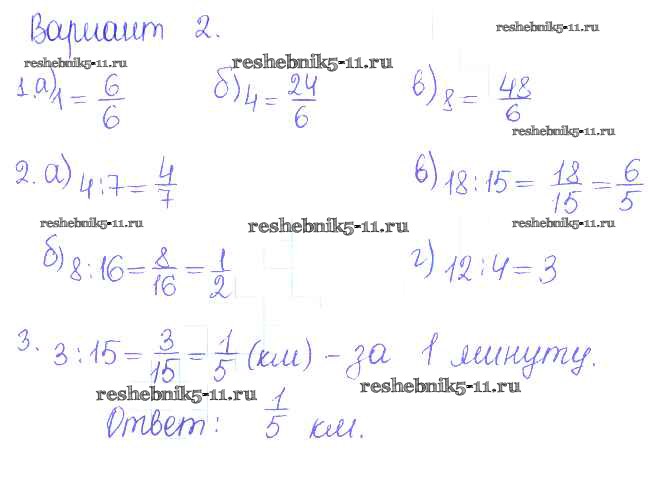 Вариант 2.
reshebnik5-11.ru
reshebnik5-11.ru
reshebnik5-11.ru
1. а) 1 = 6/6 б) 4 = 24/6 в) 8 = 48/6
reshebnik5-11.ru
2. а) 4 : 7 = 4/7 в) 18 : 15 = 18/15 = 6/5
reshebnik5-11.ru
reshebnik5-11.ru
reshebnik5-11.ru
б) 8 : 16 = 8/16 = 1/2 г) 12 : 4 = 3
3. 3 : 15 = 3/15 = 1/5 (км) – за 1 минуту.
reshebnik5-11.ru
reshebnik5-11.ru
Ответ: 1/5 км.